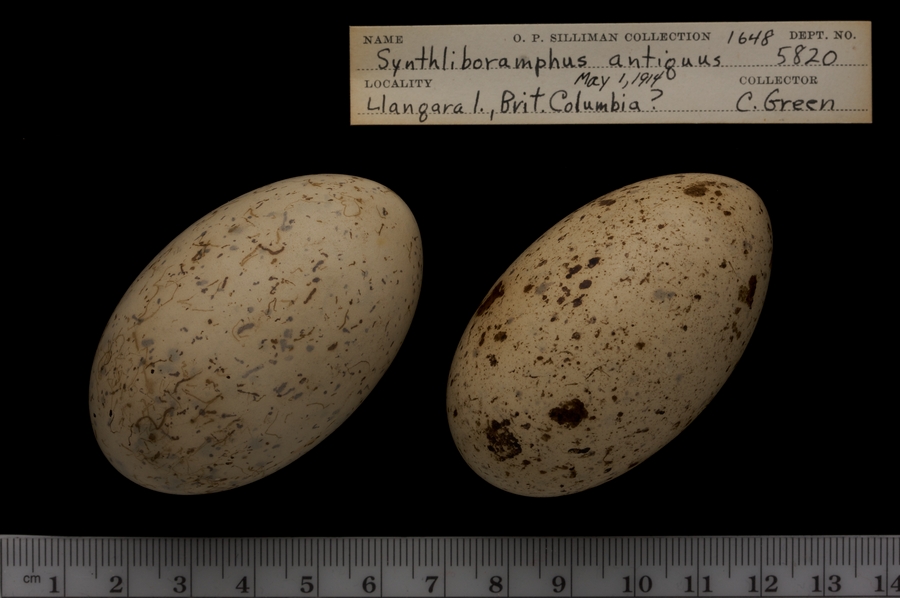 NAME O. P. SILLIMAN COLLECTION 1648 DEPT. NO.
Synthliboramphus antiquus 5820
LOCALITY May 1, 1914 COLLECTOR
Llangara I., Brit. Columbia ? C. Green
cm 1 2 3 4 5 6 7 8 9 10 11 12 13 14